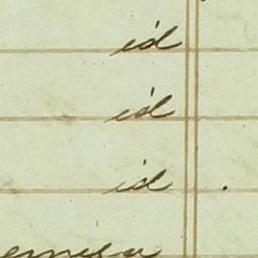 id
id
id